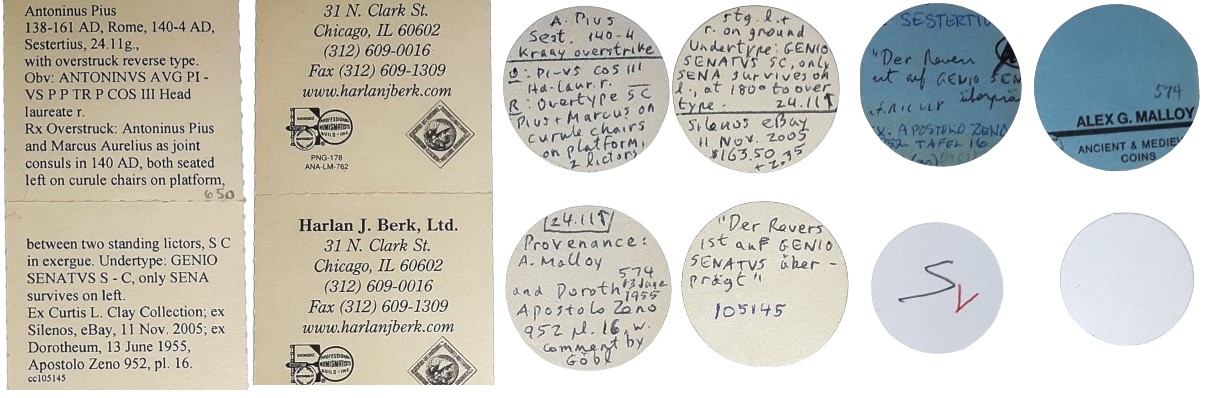 Antoninus Pius
138-161 AD, Rome, 140-4 AD,
Sestertius, 24.11g.,
with overstruck reverse type.
Obv: ANTONINVS AVG PI -
VS P P TR P COS III Head
laureate r.
Rx Overstruck: Antoninus Pius
and Marcus Aurelius as joint
consuls in 140 AD, both seated
left on curule chairs on platform,
650
between two standing lictors, S C
in exergue. Undertype: GENIO
SENATVS S - C, only SENA
survives on left.
Ex Curtis L. Clay Collection; ex
Silenos, eBay, 11 Nov. 2005; ex
Dorotheum, 13 June 1955,
Apostolo Zeno 952, pl. 16.
cc105145
31 N. Clark St.
Chicago, IL 60602
(312) 609-0016
Fax (312) 609-1309
www.harlanjberk.com
PROFESSIONAL NUMISMATISTS GUILD - INC.
PNG-178
ANA-LM-762
Harlan J. Berk, Ltd.
31 N. Clark St.
Chicago, IL 60602
(312) 609-0016
Fax (312) 609-1309
www.harlanjberk.com
PROFESSIONAL NUMISMATISTS GUILD - INC.
A. Pius
Sest. 140-4
Kraay overstrike
O: PI-VS COS III
Hd. laur. r.
R: Overtype S C
Pius + Marcus on
curule chairs
on platform,
2 lictors
stg. l. +
r. on ground
Undertype: GENIO
SENATVS SC, only
SENA survives on
l., at 180° to over
type. 24.11↑
Silenos eBay
11 Nov. 2005
$163.50
+ 2.35
SESTERTIU
"Der Revers
ist auf GENIO SEN
APOSTOLO ZENO
952 TAFEL 16
574
ALEX G. MALLOY
ANCIENT & MEDIEV
COINS
24.11↑
Provenance:
A. Malloy
574
and Doroth 13 June
1955
Apostolo Zeno
952 pl. 16, w.
comment by
Göbl
"Der Revers
ist auf GENIO
SENATVS über-
prägt"
105145
S
V